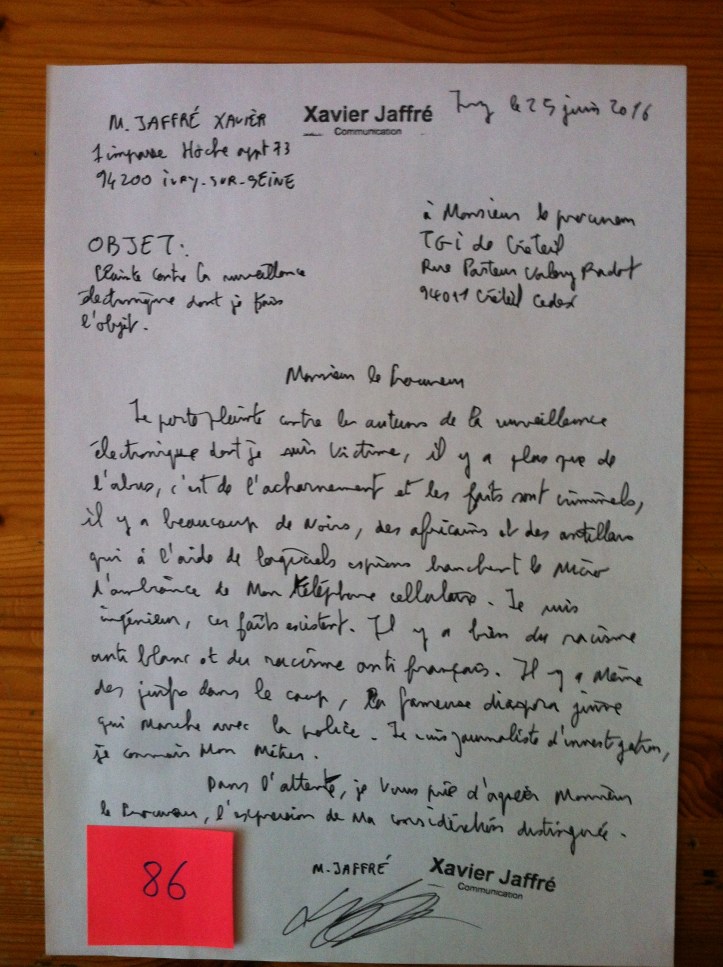 M. JAFFRÉ XAVIER
Xavier Jaffré
Communication
Ivry le 25 juin 2016
1 impasse Hoche appt 73
94200 IVRY-SUR-SEINE
à Monsieur le procureur
TGI de Créteil
Rue Pasteur Valery Radot
94011 Créteil Cedex
OBJET:
Plainte contre la surveillance
électronique dont je fais
l'objet.
Monsieur le Procureur
Je porte plainte contre les auteurs de la surveillance
électronique dont je suis victime, il y a plus que de
l'abus, c'est de l'acharnement et les faits sont criminels,
il y a beaucoup de Noirs, des africains et des antillais
qui à l'aide de logiciels espions branchent le micro
d'ambiance de mon téléphone cellulaire. Je suis
ingénieur, ces faits existent. Il y a bien du racisme
anti blanc et du racisme anti français. Il y a même
des juifs dans le coup, la fameuse diaspora juive
qui marche avec la police. Je suis journaliste d'investigation,
je connais mon métier.
Dans l'attente, je vous prie d'agréer Monsieur
le Procureur, l'expression de ma considération distinguée.
86
M. JAFFRÉ
Xavier Jaffré
Communication